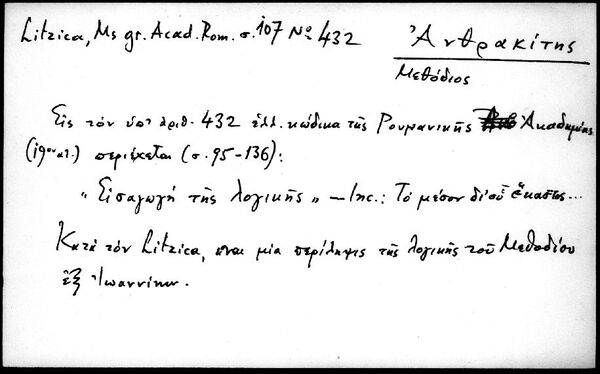 Litzica, Ms gr. Acad. Rom. σ. 107 Νο 432
Ἀνθρακίτης
Μεθόδιος
Εἰς τὸν ὑπ' ἀριθ. 432 ἑλλ. κώδικα τῆς Ρουμανικῆς Ἀκαδημίας
(19ου αἰ.) περιέχεται (σ. 95-136):
"Εἰσαγωγὴ τῆς λογικῆς" — Inc.: Τὸ μέσον δι' οὗ ἕκαστος...
Κατὰ τὸν Litzica, εἶναι μία περίληψις τῆς λογικῆς τοῦ Μεθοδίου
ἐξ Ἰωαννίνων.